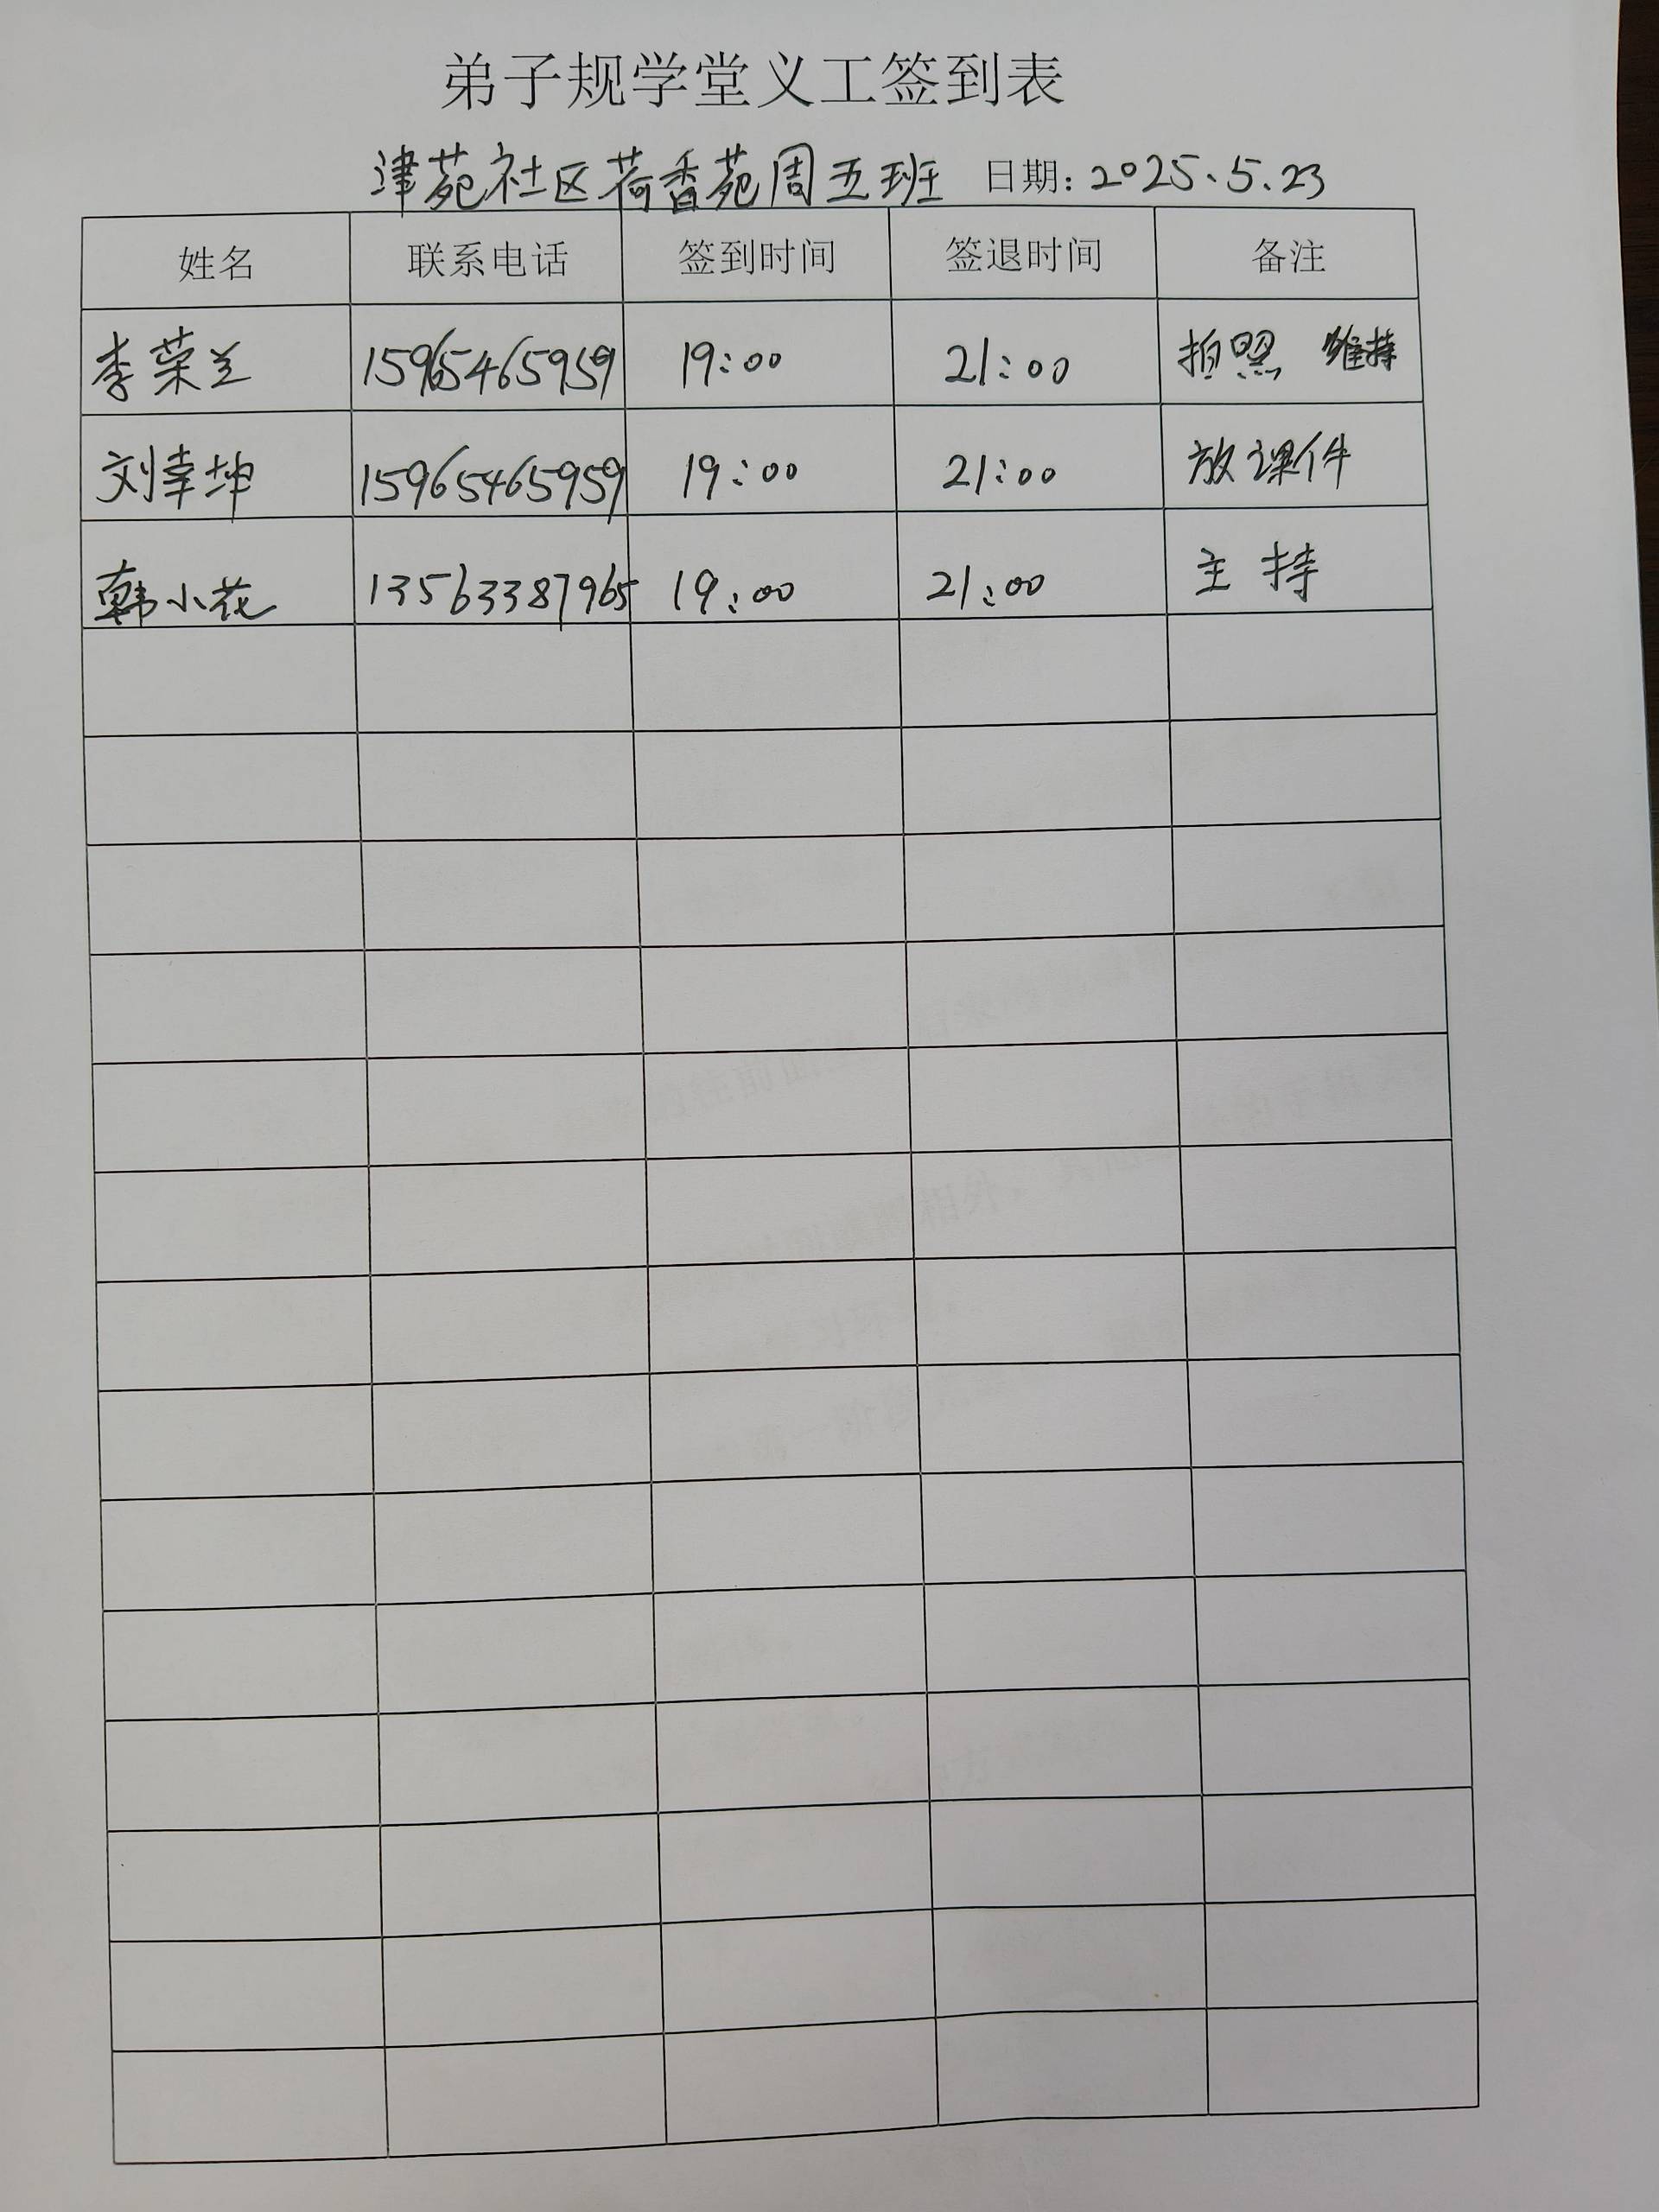 弟子规学堂义工签到表
津苑社区荷香苑周五班 日期：2025.5.23
姓名 联系电话 签到时间 签退时间 备注
李荣兰 15965465959 19:00 21:00 拍照 维持
刘幸坤 15965465959 19:00 21:00 放课件
韩小花 13563387965 19:00 21:00 主持